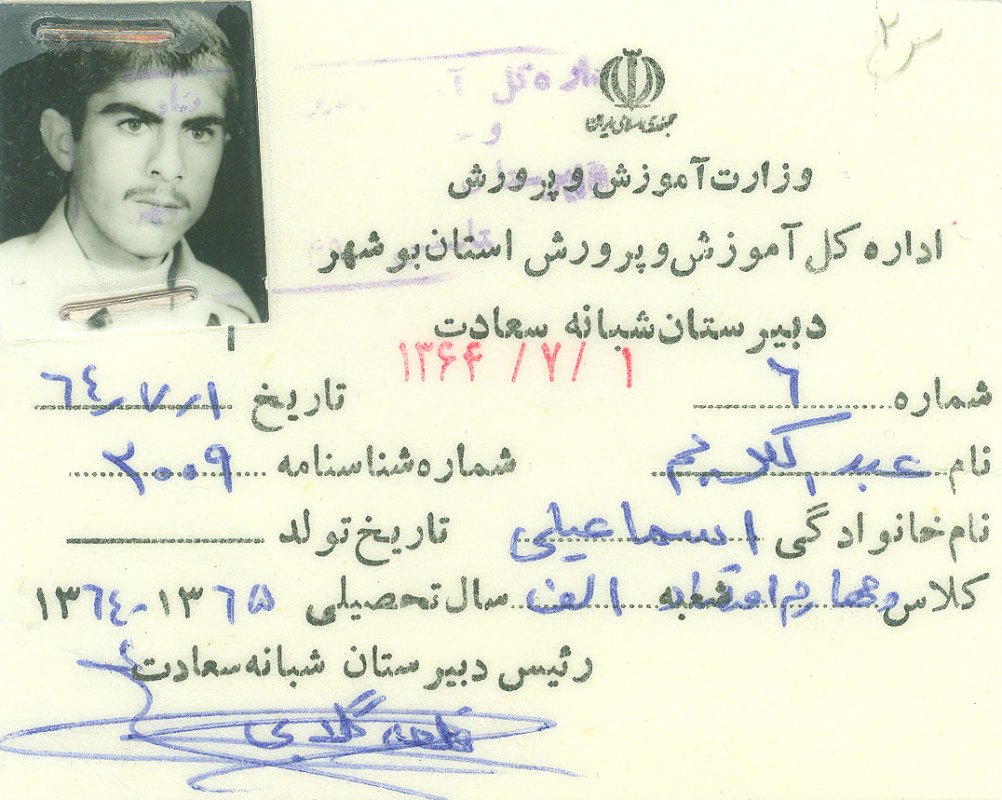 س ۲
جمهوری اسلامی ایران
وزارت آموزش و پرورش
اداره کل آموزش و پرورش استان بوشهر
دبیرستان شبانه سعادت
۱۳۶۴/۷/۱
شماره ۶ تاریخ ۶٤٫۷٫۱
نام عبدالکریم شماره شناسنامه ۲۰۰۹
نام خانوادگی اسماعیلی تاریخ تولد
کلاس چهارم اقتصاد شعبه الف سال تحصیلی ۱۳۶٤-۱۳۶۵
رئیس دبیرستان شبانه سعادت